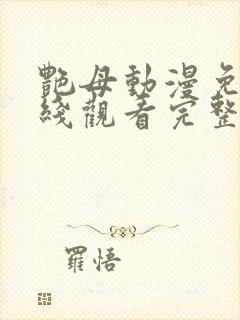 艷母動漫免
綫觀看完整
羅悟